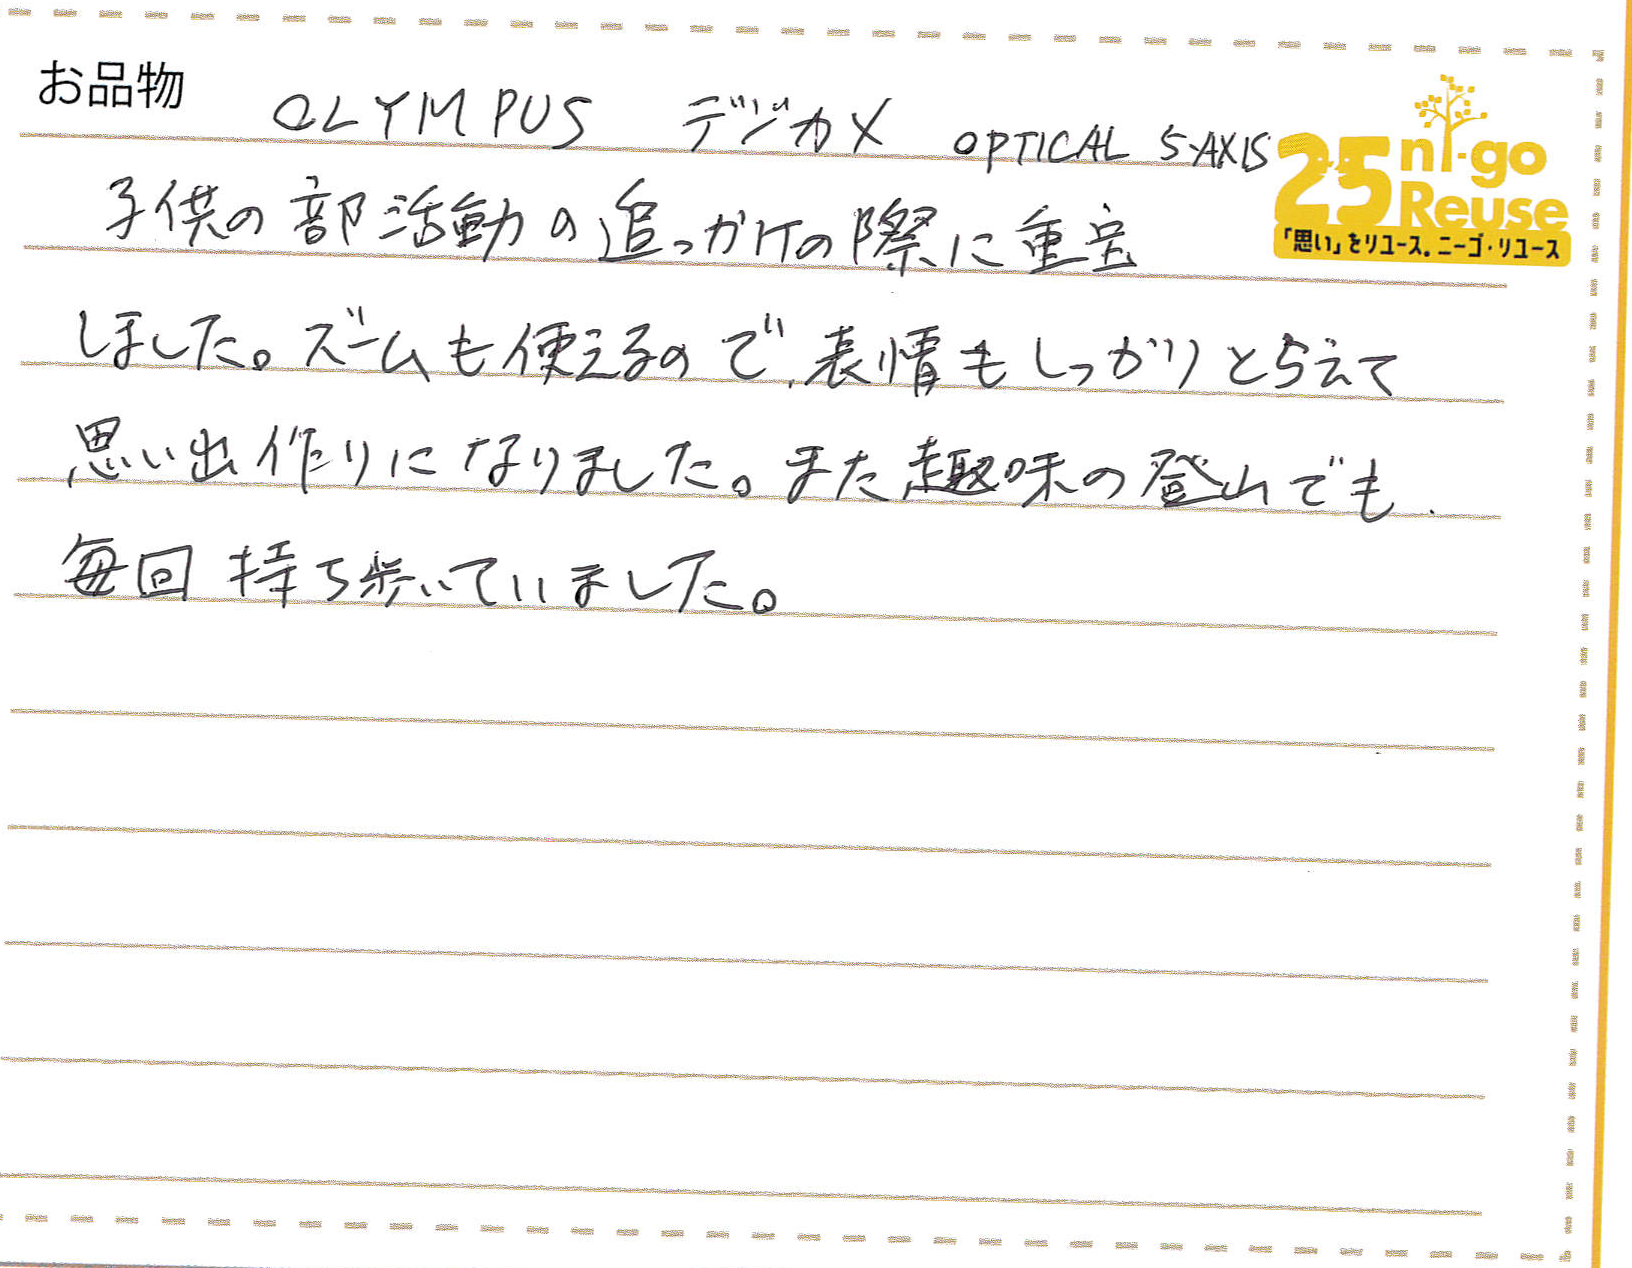 お品物 OLYMPUS デジカメ OPTICAL 5-AXIS
25 ni-go Reuse
「思い」をリユース。ニーゴ・リユース
子供の部活動の追っかけの際に重宝
しました。ズームも使えるので、表情もしっかりとらえて
思い出作りになりました。また趣味の登山でも、
毎回持ち歩いていました。